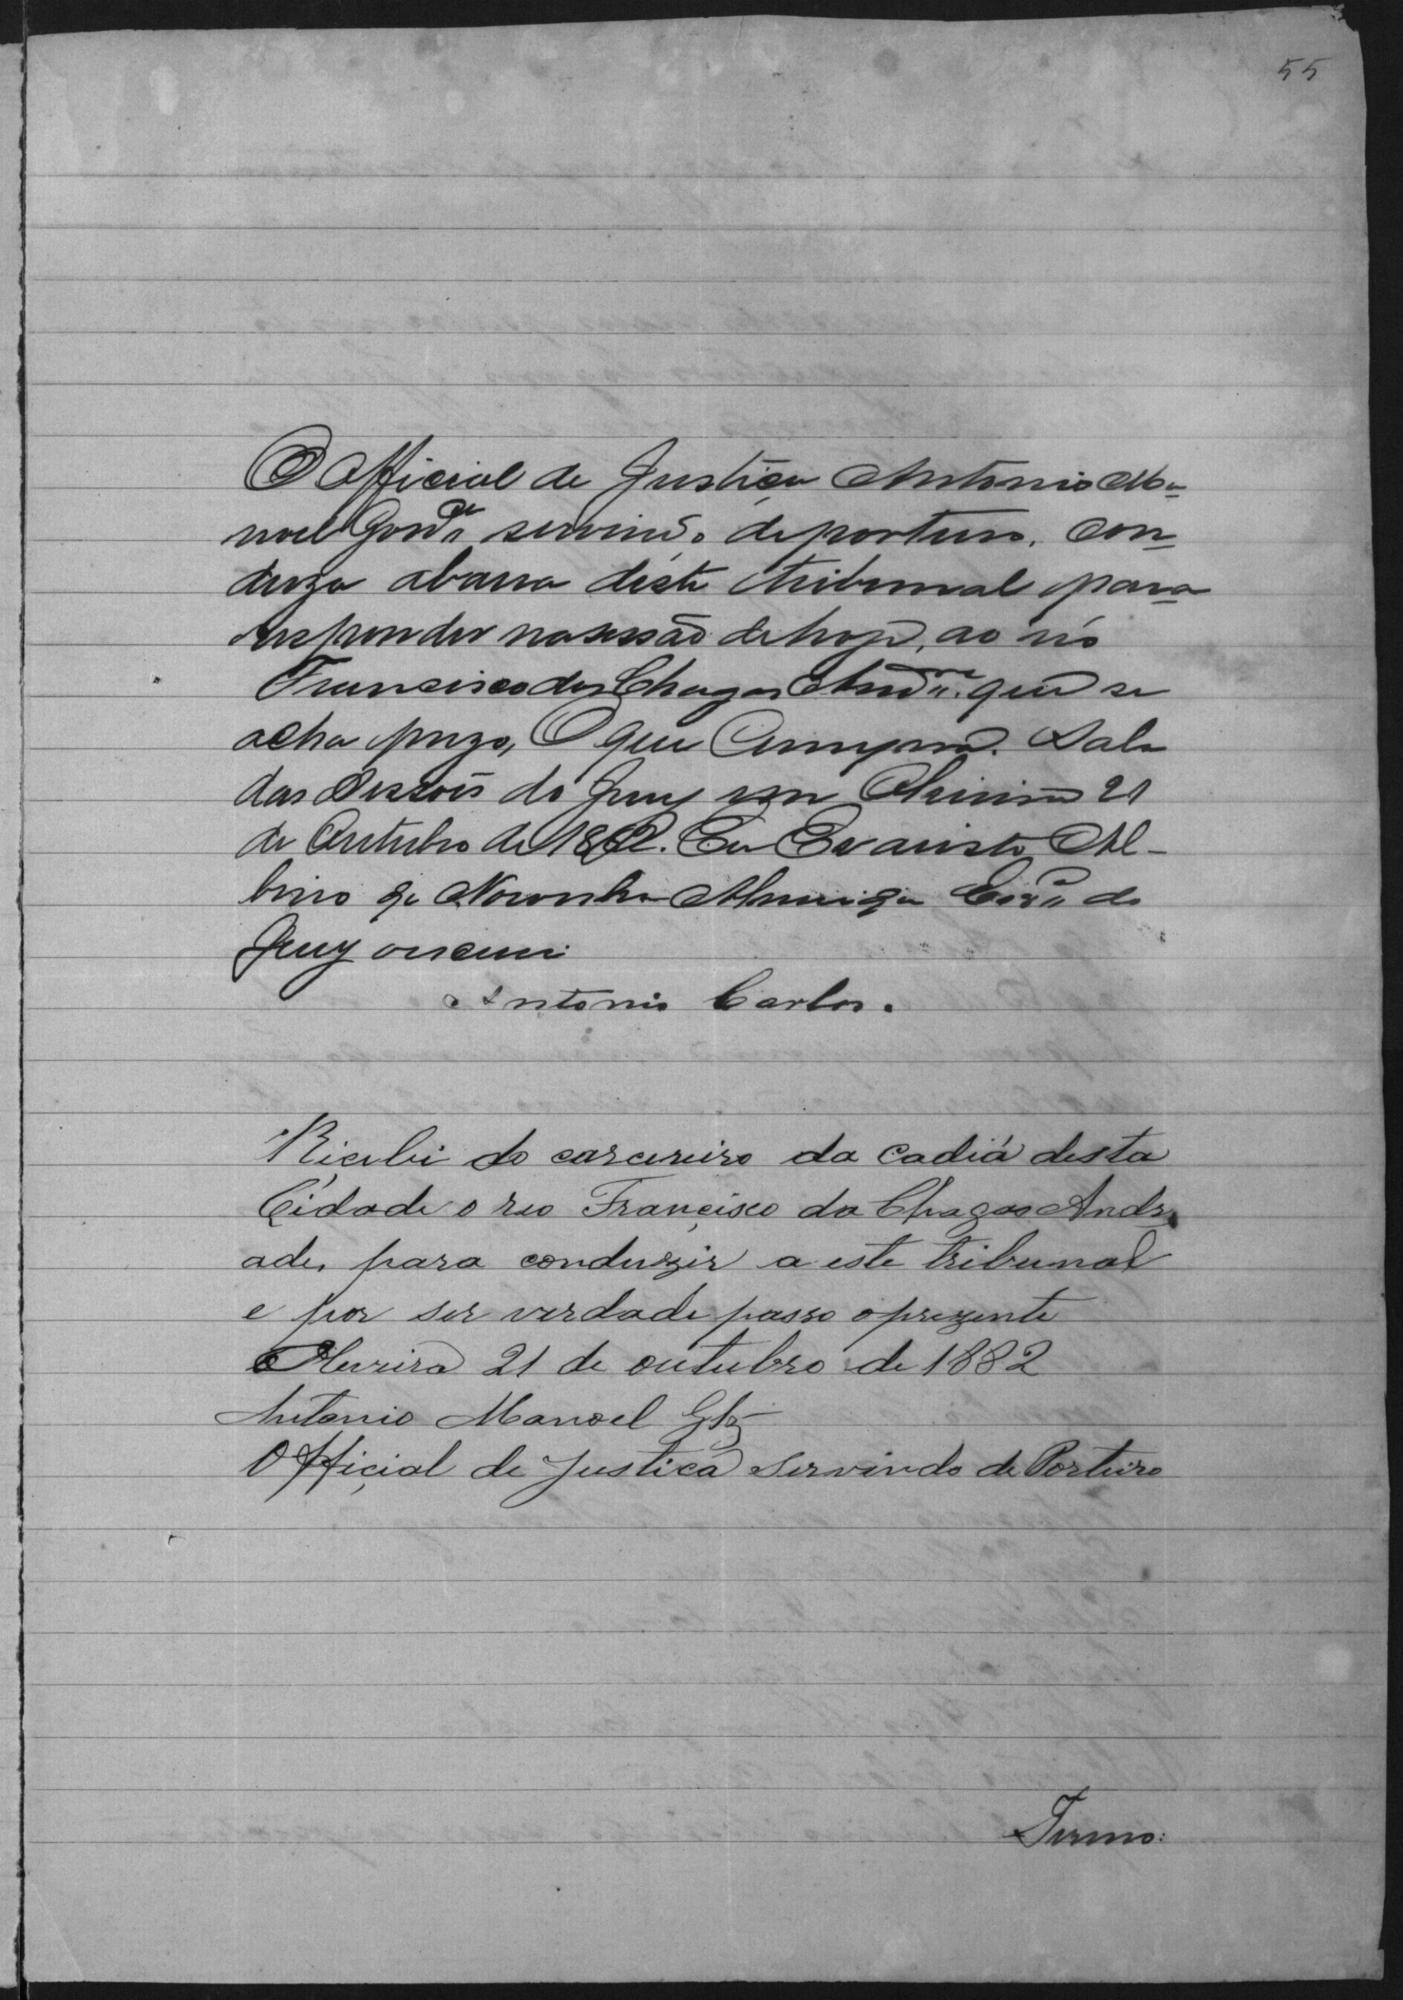 55
O Official de Justiça Antonio Ma-
noel servindo de porteiro, con-
duza abarra deste tribunal para
responder nasessão de hoje, ao réo
Francisco das Chagas And.e que se
acha prezo, O que Cumpra. Sala
das Sessoẽs do Jury em Oliveira 21
de Outubro de 1882. Eu Evaristo Al-
bino de Noronha Escr.m do
Jury o escrevi
Antonio Carlos.
Ricebi do carcereiro da cadiá desta
Cidade o reo Françisco da Chagas Andr
ade, para conduzir a este tribunal
e por ser verdade passo oprezente
Oliveira 21 de outubro de 1882
Antonio Manoel Glz
Offiçial de Justica servindo de Porteiro
Termo: